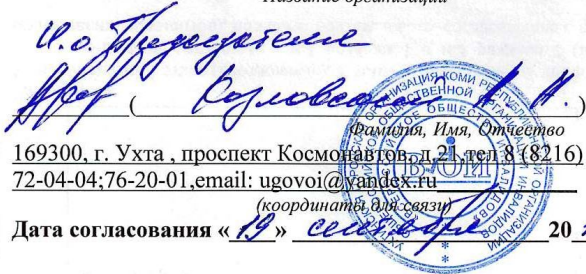 Название организации
И.о. Председателя
(Козловской А. А.)
Фамилия, Имя, Отчество
169300, г. Ухта , проспект Космонавтов, д,21,тел 8 (8216)
72-04-04;76-20-01,email: ugovoi@yandex.ru
(координаты для связи)
Дата согласования «19» сентября 20
ВОИ